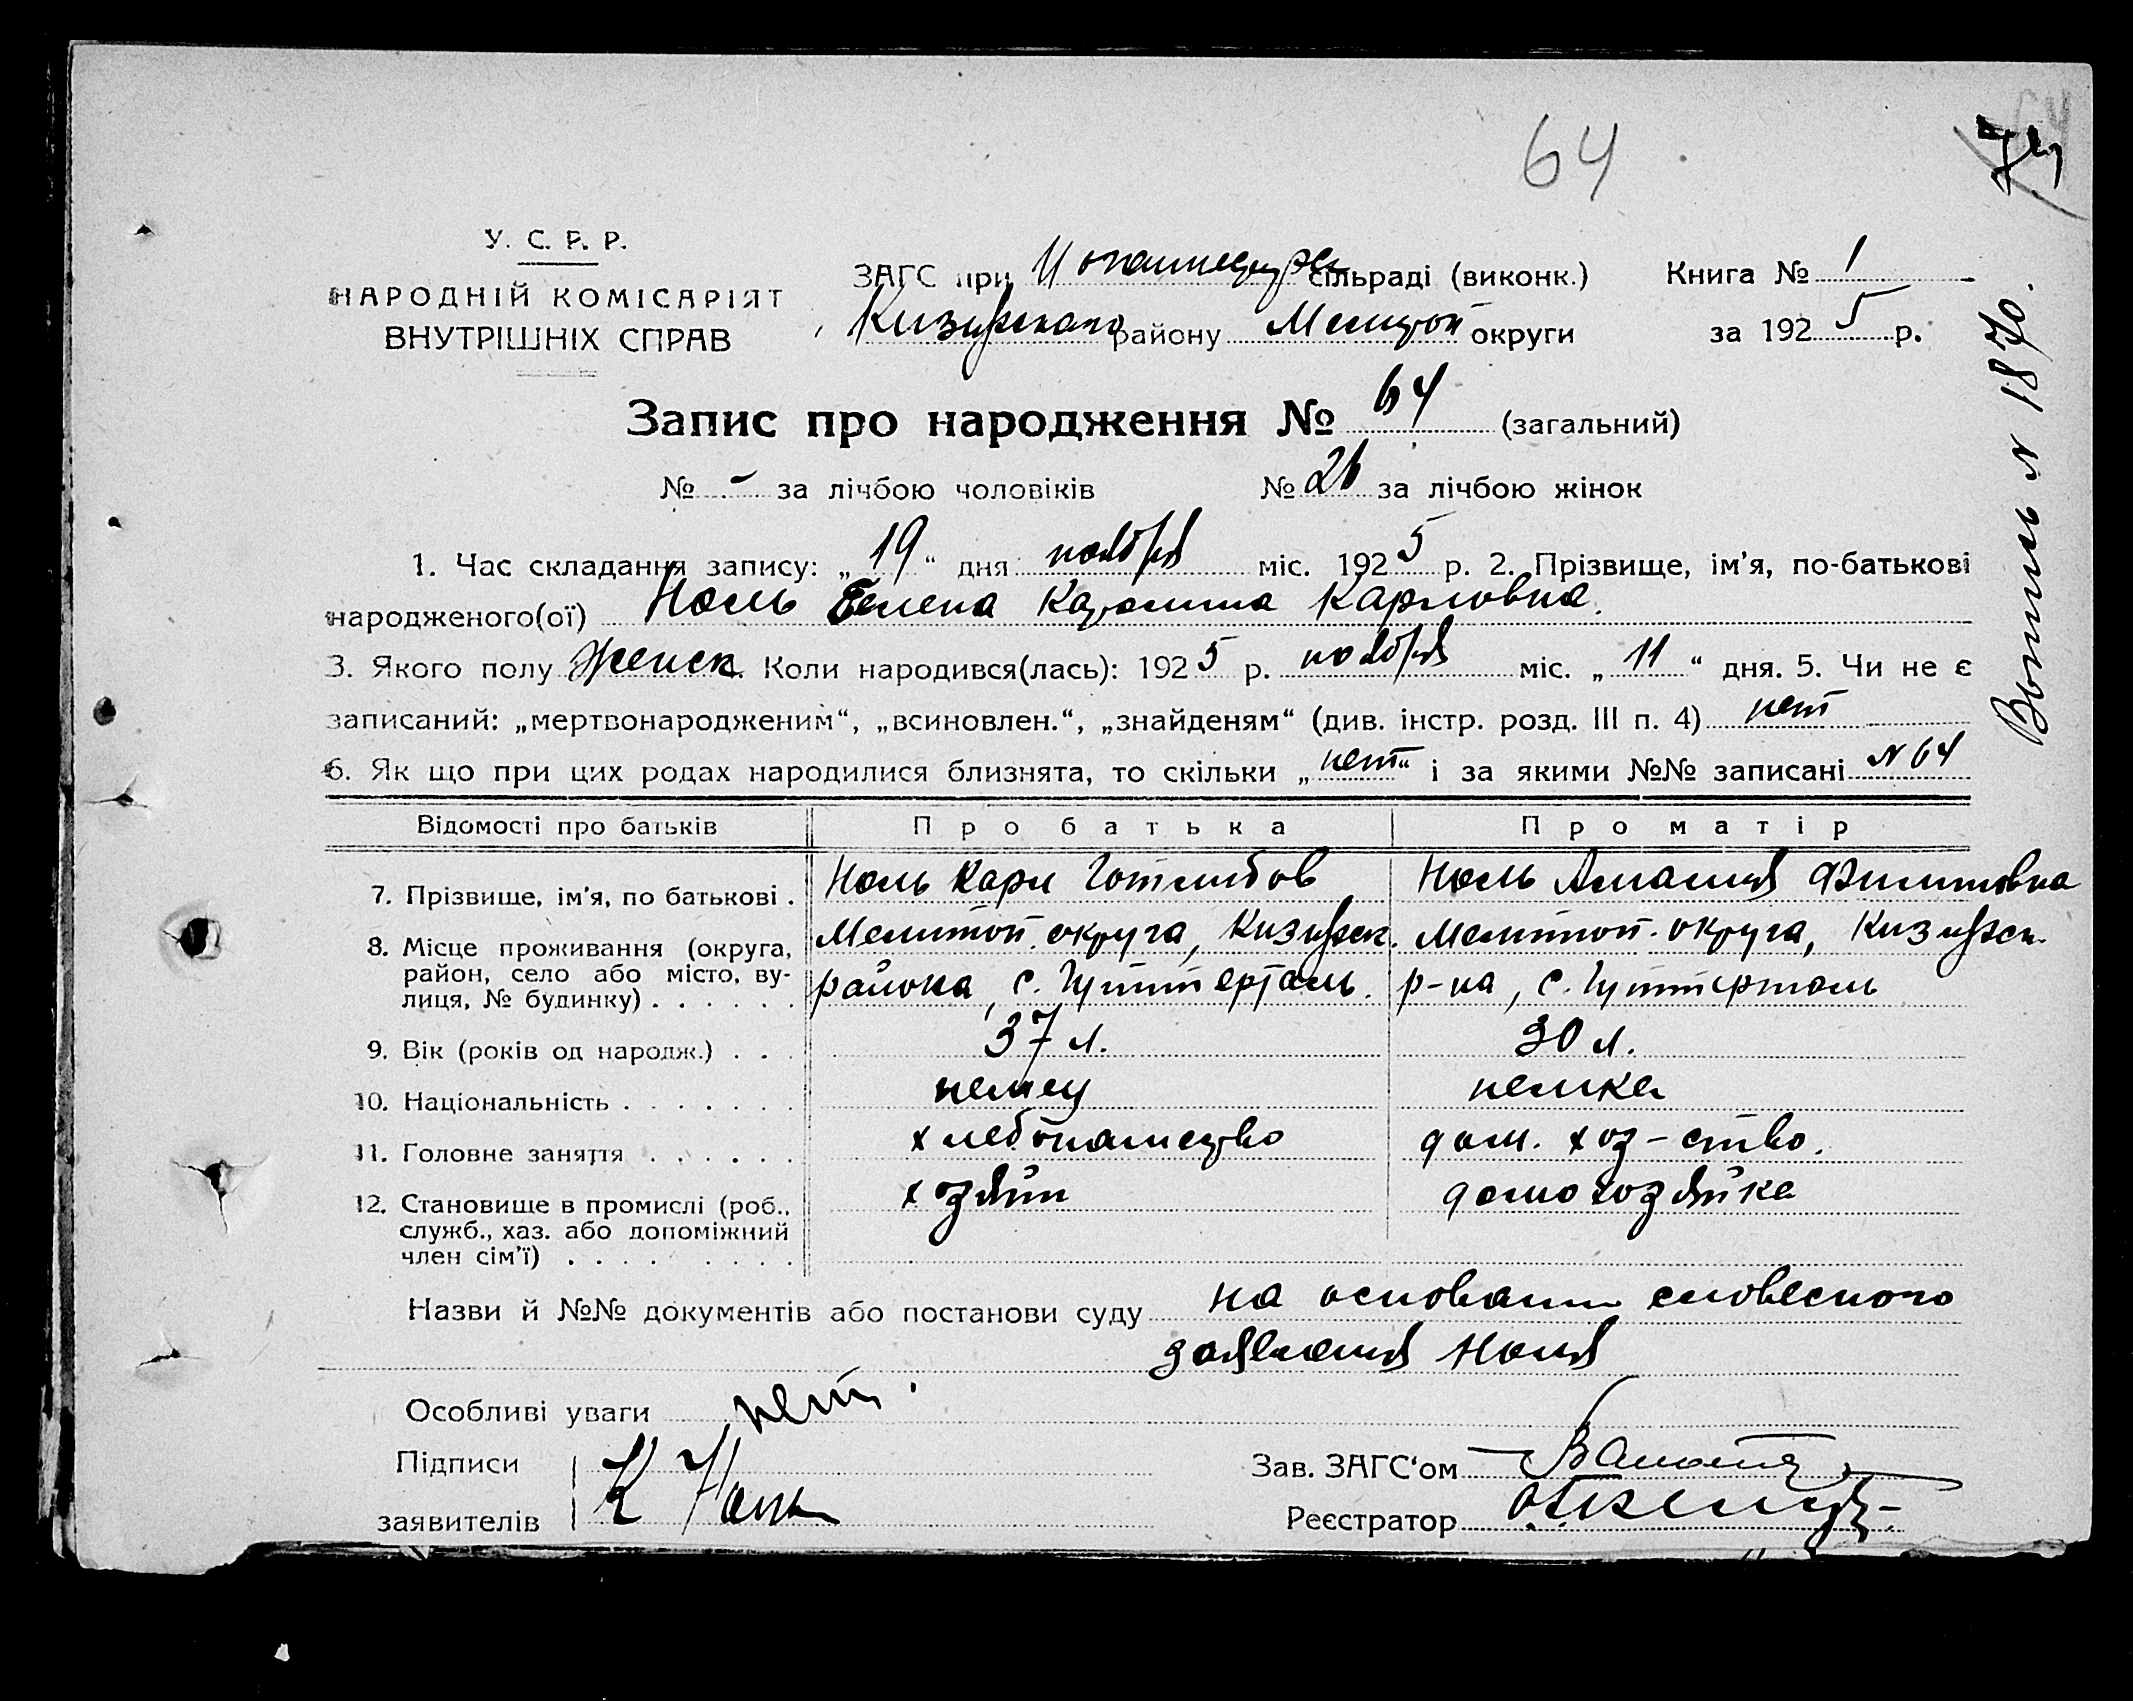 64
У. С. Р. Р.
НАРОДНІЙ КОМІСАРІЯТ
ВНУТРІШНІХ СПРАВ
ЗАГС при сільраді (виконк.) Книга № 1
району Мелитоп округи за 1925 р.
Запис про народження № 64 (загальний)
№ - за лічбою чоловіків № 26 за лічбою жінок
1. Час складання запису: „19“ дня ноября міс. 1925 р. 2. Прізвище, ім'я, по-батькові
народженого(ої) Ноль Елена Каролина Карловна.
3. Якого полу Женск. Коли народився(лась): 1925 р. ноября міс. „11“ дня. 5. Чи не є
записаний: „мертвонародженим“, „всиновлен.“, „знайденям“ (див. інстр. розд. III п. 4) нет
6. Як що при цих родах народилися близнята, то скільки „нет“ і за якими №№ записані N 64
Відомості про батьків Про батька Про матір
7. Прізвище, ім'я, по батькові . Ноль Карл Готлибов Ноль Амалия Филиповна
8. Місце проживання (округа, Мелитоп. округа, Кизиярск. Мелитоп. округа, Кизиярск.
район, село або місто, ву- района, с. Гуттерталь. р-на, с. Гуттерталь
лиця, № будинку) . . . . . .
9. Вік (років од народж.) . . . 37 л. 30 л.
10. Національність . . . . . . . немец немка
11. Головне заняття . . . . . . хлебопашество дом. хоз-ство.
12. Становище в промислі (роб., хозяин домохозяйка
служб., хаз. або допоміжний
член сім'ї) . . . . . . . .
Назви й №№ документів або постанови суду на основании словесного
заявления Ноля
Особливі уваги нет.
Підписи К Ноль Зав. ЗАГС'ом
заявителів Реєстратор
Выпись N 1870.